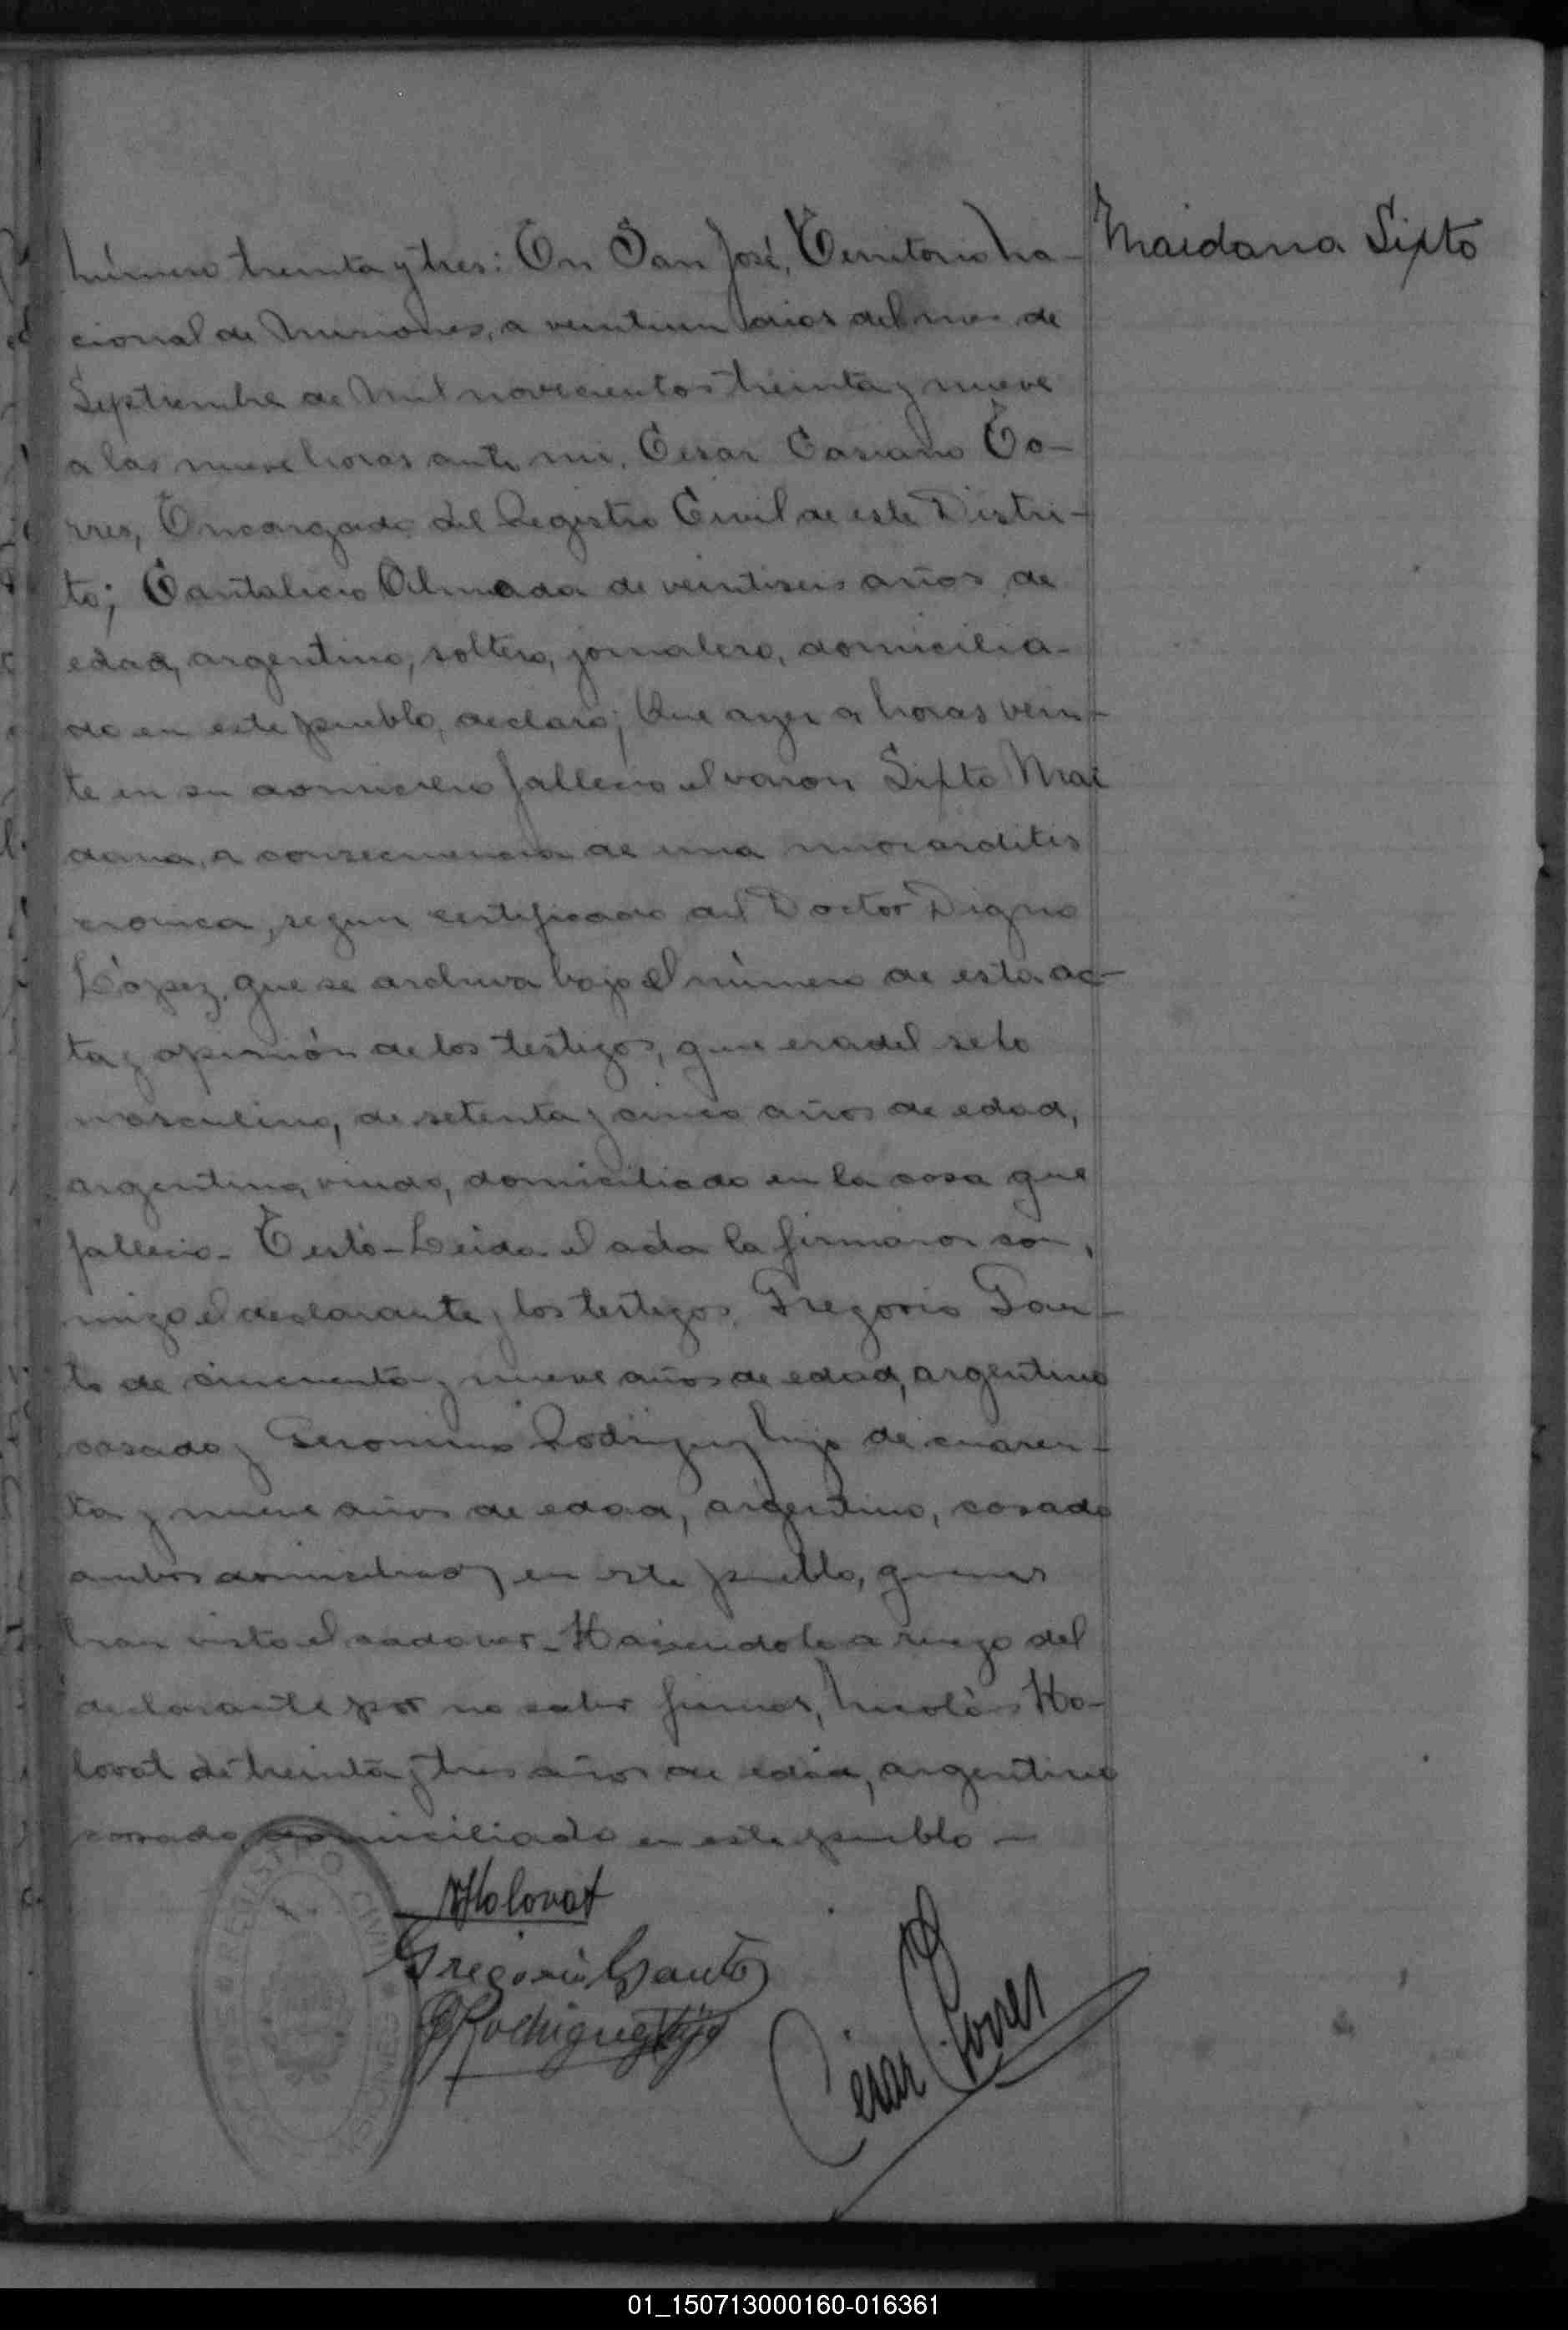 Maidana Sixto
Número treinta y tres: En San José, Territorio Na-
cional de Misiones, a veintiun dias del mes de
Septiembre de mil novecientos treinta y nueve
a las nueve horas ante mi, Cesar Casiano To-
rres, Encargado del Registro Civil de este Distri-
to; Cantalicio Almada de veintiseis años de
edad, argentino, soltero, jornalero, domicilia-
do en este pueblo, declaró; Que ayer a horas vein-
te en su domicilio fallecio el varon Sixto Mai
dana, a consecuencia de una miocarditis
cronica, segun certificado del Doctor Digno
López, que se archiva bajo el número de esta ac-
ta y opinión de los testigos, que era del sexo
masculino, de setenta y cinco años de edad,
argentino, viudo, domiciliado en la casa que
fallecio. Testó - Leida el acta la firmaron con,
migo el declarante y los testigos, Gregorio Gau-
to de cincuenta y nueve años de edad, argentino
casado y Geronimo Rodriguez hijo de cuaren-
ta y nueve años de edad, argentino, casado
ambos domiciliados en este pueblo, quienes
han visto el cadaver. Haciendolo a ruego del
declarante por no saber firmar, Nicolás Ho-
lovat de treinta y tres años de edad, argentino
casado, domiciliado en este pueblo —
NHolovat
Gregorio Gauto
GRodriguez hijo
César Torres
REGISTRO CIVIL
MISIONES
01_150713000160-016361